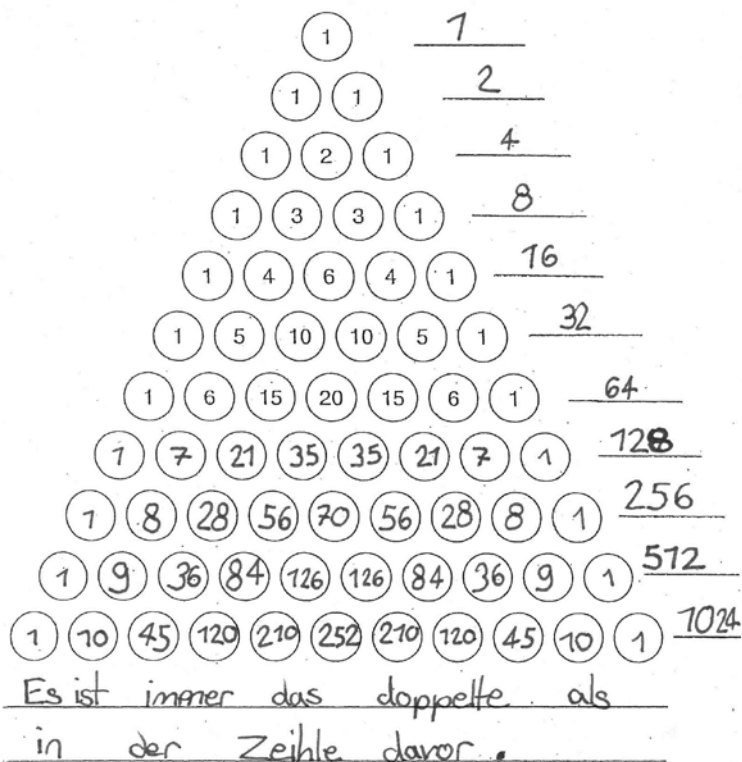 1 1
1 1 2
1 2 1 4
1 3 3 1 8
1 4 6 4 1 16
1 5 10 10 5 1 32
1 6 15 20 15 6 1 64
1 7 21 35 35 21 7 1 128
1 8 28 56 70 56 28 8 1 256
1 9 36 84 126 126 84 36 9 1 512
1 10 45 120 210 252 210 120 45 10 1 1024
Es ist immer das doppelte als
in der Zeihle davor.